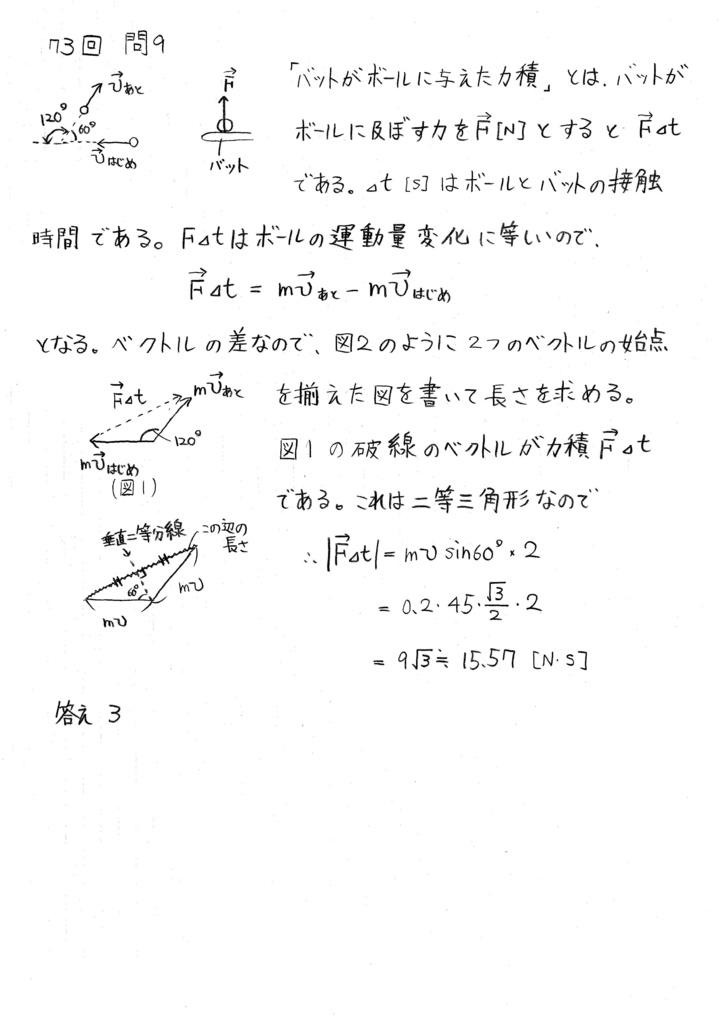 73回 問9
「バットがボールに与えた力積」とは、バットが
ボールに及ぼす力をF→[N]とするとF→Δt
である。Δt[s]はボールとバットの接触
時間である。FΔtはボールの運動量変化に等しいので、
F→Δt = mv→あと − mv→はじめ
となる。ベクトルの差なので、図2のように2つのベクトルの始点
を揃えた図を書いて長さを求める。
図1の破線のベクトルが力積F→Δt
である。これは二等三角形なので
∴ |F→Δt| = mv sin60°×2
= 0.2・45・√3/2・2
= 9√3≒15.57 [N・s]
答え 3
v→あと
120°
60°
v→はじめ
F→
バット
F→Δt
mv→あと
120°
mv→はじめ
(図1)
垂直二等分線
この辺の
長さ
60°
mv
mv